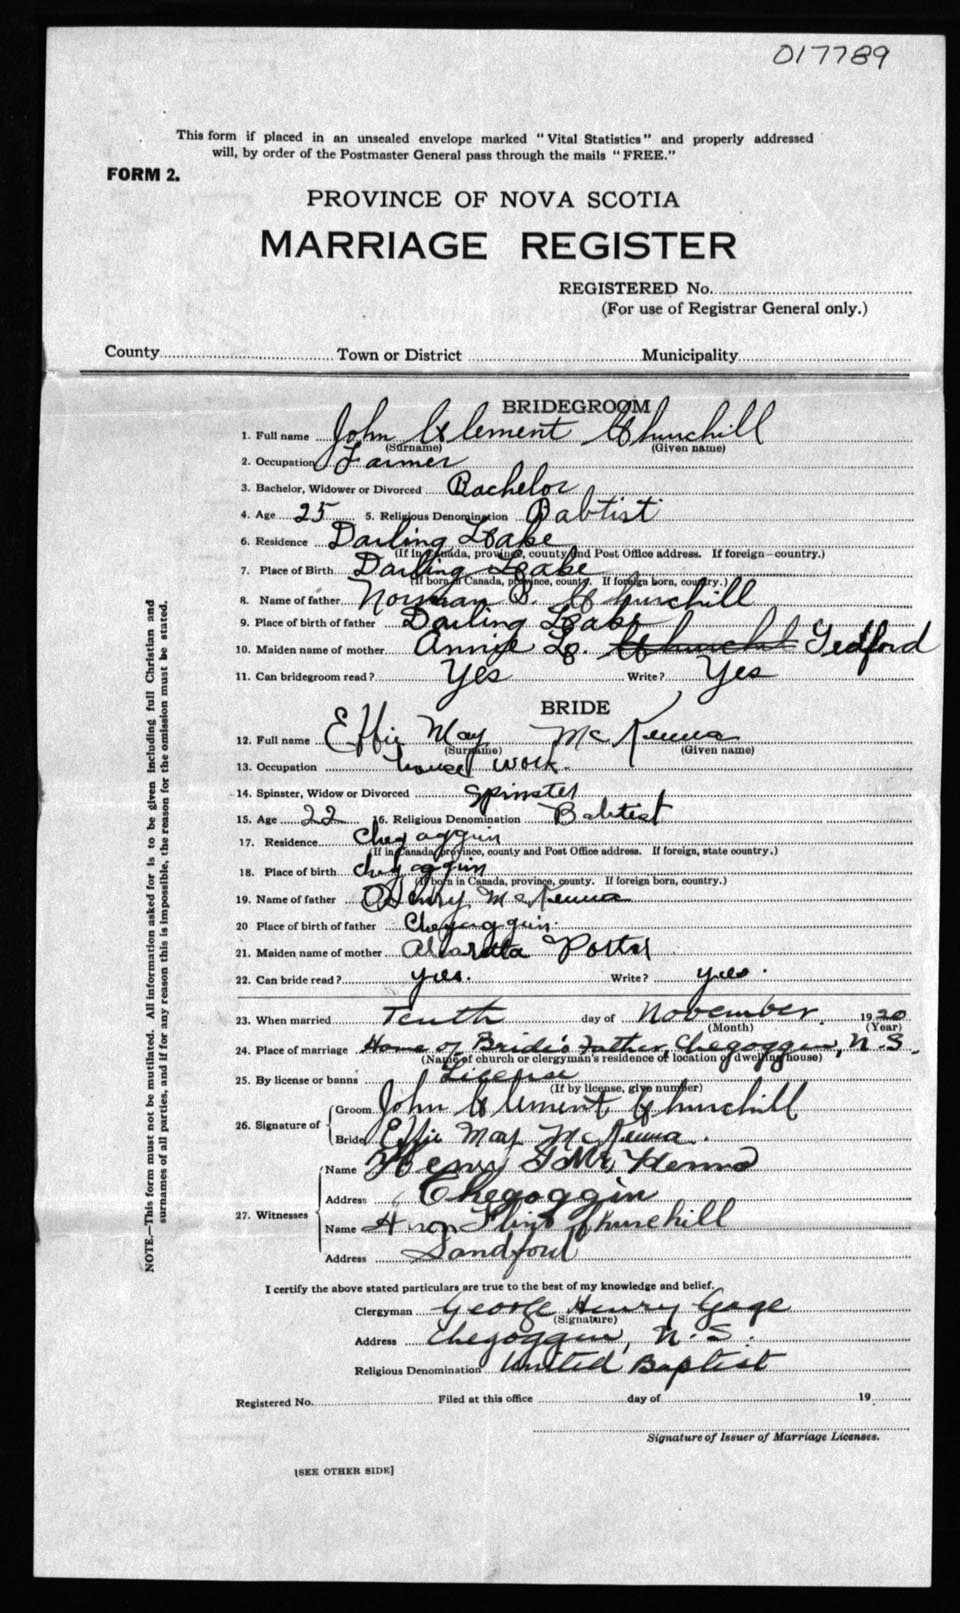 017789
This form if placed in an unsealed envelope marked "Vital Statistics" and properly addressed
will, by order of the Postmaster General pass through the mails "FREE."
FORM 2.
PROVINCE OF NOVA SCOTIA
MARRIAGE REGISTER
REGISTERED No.
(For use of Registrar General only.)
County Town or District Municipality
BRIDEGROOM
1. Full name John Clement Churchill
(Surname) (Given name)
2. Occupation Farmer
3. Bachelor, Widower or Divorced Bachelor
4. Age 25 5. Religious Denomination Babtist
6. Residence Darling Lake
(If in Canada, province, county and Post Office address. If foreign—country.)
7. Place of Birth Darling Lake
(If born in Canada, province, county. If foreign born, country.)
8. Name of father Norman B. Churchill
9. Place of birth of father Darling Lake
10. Maiden name of mother Annie L. Churchil Tedford
11. Can bridegroom read? Yes Write? Yes
BRIDE
12. Full name Effie May McKenna
(Surname) (Given name)
13. Occupation house work.
14. Spinster, Widow or Divorced Spinster
15. Age 22 16. Religious Denomination Babtist
17. Residence Chegoggin
(If in Canada, province, county and Post Office address. If foreign, state country.)
18. Place of birth Chegoggin
(If born in Canada, province, county. If foreign born, country.)
19. Name of father Henry McKenna
20 Place of birth of father Chegoggin.
21. Maiden name of mother Alvaretta Porter
22. Can bride read? yes. Write? yes.
23. When married Tenth day of November. 1920
(Month) (Year)
24. Place of marriage Home of Bride's Father, Chegoggin, N.S.
(Name of church or clergyman's residence or location of dwelling house)
25. By license or banns License
(If by license, give number)
26. Signature of
Groom John Clement Churchill
Bride Effie May McKenna.
27. Witnesses
Name Henry McKenna
Address Chegoggin
Name Flint Churchill
Address Sandford
I certify the above stated particulars are true to the best of my knowledge and belief.
Clergyman George Henry Gage
(Signature)
Address Chegoggin, N.S.
Religious Denomination United Baptist
Registered No. Filed at this office day of 19
Signature of Issuer of Marriage Licenses.
[SEE OTHER SIDE]
NOTE.—This form must not be mutilated. All information asked for is to be given including full Christian and
surnames of all parties, and if for any reason this is impossible, the reason for the omission must be stated.